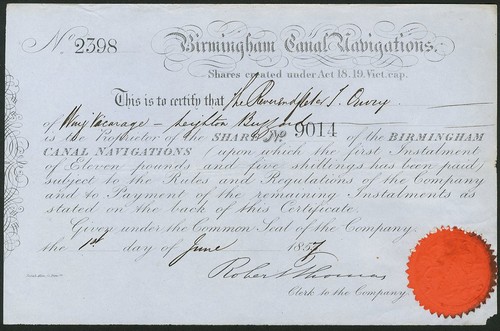 No. 2398 Birmingham Canal Navigations.
Shares created under Act 18.19. Vict. cap.
This is to certify that The Reverend Peter T. Ouvry
of Wing Vicarage – Leighton Buzzard
is the Proprietor of the SHARE No. 9014 of the BIRMINGHAM
CANAL NAVIGATIONS upon which the first Instalment
of Eleven pounds and five shillings has been paid,
subject to the Rules and Regulations of the Company
and to Payment of the remaining Instalments as
stated on the back of this Certificate.
Given under the Common Seal of the Company,
the 1st day of June 1857
Robert Thomas
Clerk to the Company.